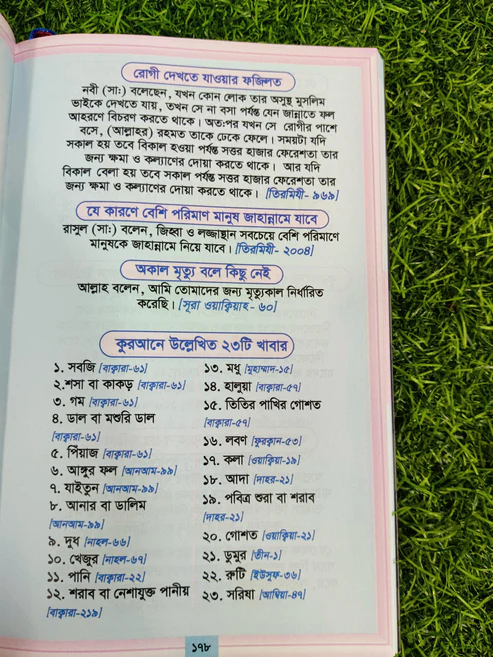 রোগী দেখতে যাওয়ার ফজিলত
নবী (সাঃ) বলেছেন, যখন কোন লোক তার অসুস্থ মুসলিম
ভাইকে দেখতে যায়, তখন সে না বসা পর্যন্ত যেন জান্নাতে ফল
আহরণে বিচরণ করতে থাকে। অতঃপর যখন সে রোগীর পাশে
বসে, (আল্লাহর) রহমত তাকে ঢেকে ফেলে। সময়টা যদি
সকাল হয় তবে বিকাল হওয়া পর্যন্ত সত্তর হাজার ফেরেশতা তার
জন্য ক্ষমা ও কল্যাণের দোয়া করতে থাকে। আর যদি
বিকাল বেলা হয় তবে সকাল পর্যন্ত সত্তর হাজার ফেরেশতা তার
জন্য ক্ষমা ও কল্যাণের দোয়া করতে থাকে। [তিরমিযী- ৯৬৯]
যে কারণে বেশি পরিমাণ মানুষ জাহান্নামে যাবে
রাসুল (সাঃ) বলেন, জিহ্বা ও লজ্জাস্থান সবচেয়ে বেশি পরিমাণে
মানুষকে জাহান্নামে নিয়ে যাবে। [তিরমিযী- ২০০৪]
অকাল মৃত্যু বলে কিছু নেই
আল্লাহ বলেন, আমি তোমাদের জন্য মৃত্যুকাল নির্ধারিত
করেছি। [সূরা ওয়াক্বিয়াহ- ৬০]
কুরআনে উল্লেখিত ২৩টি খাবার
১. সবজি [বাক্বারা-৬১]
২.শসা বা কাকড় [বাক্বারা-৬১]
৩. গম [বাক্বারা-৬১]
৪. ডাল বা মশুরি ডাল
[বাক্বারা-৬১]
৫. পিঁয়াজ [বাক্বারা-৬১]
৬. আঙ্গুর ফল [আনআম-৯৯]
৭. যাইতুন [আনআম-৯৯]
৮. আনার বা ডালিম
[আনআম-৯৯]
৯. দুধ [নাহল-৬৬]
১০. খেজুর [নাহল-৬৭]
১১. পানি [বাক্বারা-২২]
১২. শরাব বা নেশাযুক্ত পানীয়
[বাক্বারা-২১৯]
১৩. মধু [মুহাম্মাদ-১৫]
১৪. হালুয়া [বাক্বারা-৫৭]
১৫. তিতির পাখির গোশত
[বাক্বারা-৫৭]
১৬. লবণ [ফুরকান-৫৩]
১৭. কলা [ওয়াক্বিয়া-১৯]
১৮. আদা [দাহর-২১]
১৯. পবিত্র শুরা বা শরাব
[দাহর-২১]
২০. গোশত [ওয়াক্বিয়া-২১]
২১. ডুমুর [তীন-১]
২২. রুটি [ইউসুফ-৩৬]
২৩. সরিষা [আম্বিয়া-৪৭]
১৭৮